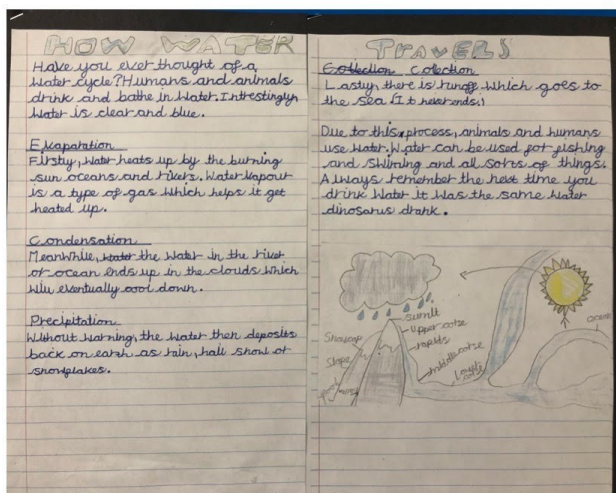 HOW WATER TRAVELS
Have you ever thought of a
water cycle? Humans and animals
drink and bathe in water. Intrestingly
water is clear and blue.
Evaparation
Firstly, water heats up by the burning
sun oceans and rivers. Water vapour
is a type of gas which helps it get
heated up.
Condensation
Meanwhile, water the water in the river
or ocean ends up in the clouds which
will eventually cool down.
Precipitation
Without warning, the water then deposits
back on earth as rain, hail snow or
snowflakes.
Collection Colection
Lastly, there is runoff which goes to
the sea (It never ends.)
Due to this process, animals and humans
use water. Water can be used for fishing
and swiming and all sorts of things.
Always remember the next time you
drink water it was the same water
dinosarus drank.
sumit
Upper corse
Snowcap
rapids
Slope
middle corse
Lower corse
ocean